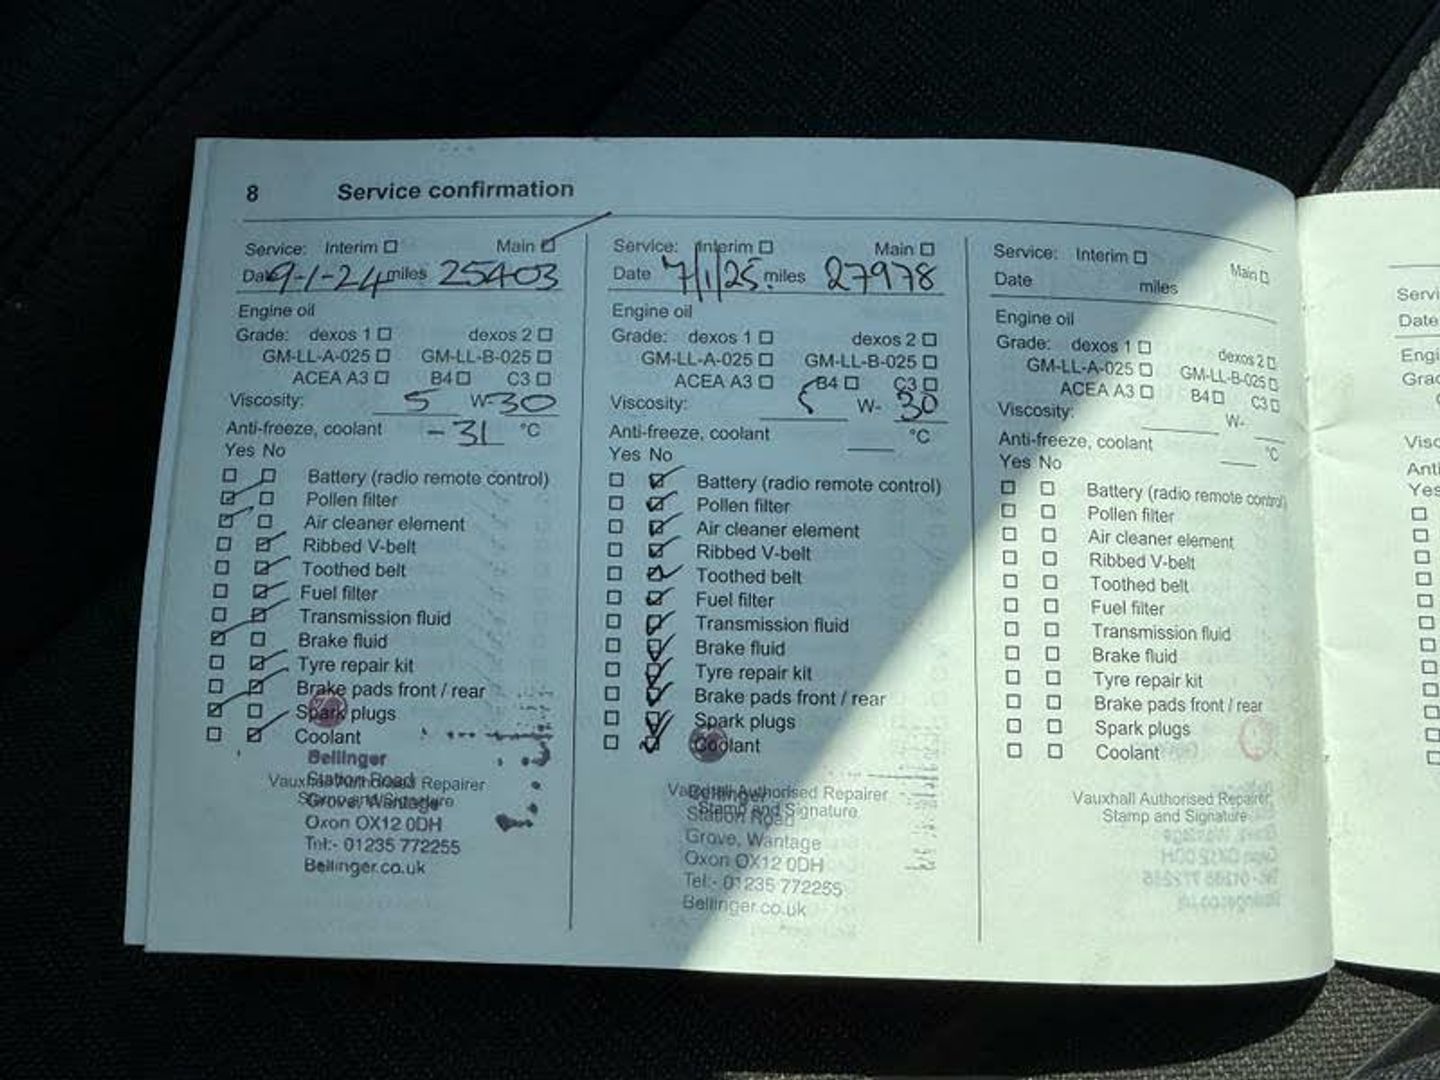 8 Service confirmation
Service: Interim Main
Date 9-1-24 miles 25403
Engine oil
Grade: dexos 1 dexos 2
GM-LL-A-025 GM-LL-B-025
ACEA A3 B4 C3
Viscosity: 5 W-30
Anti-freeze, coolant -31 °C
Yes No
Battery (radio remote control)
Pollen filter
Air cleaner element
Ribbed V-belt
Toothed belt
Fuel filter
Transmission fluid
Brake fluid
Tyre repair kit
Brake pads front / rear
Spark plugs
Coolant
Bellinger
Vauxhall Authorised Repairer
Station Road
Stamp and Signature
Grove, Wantage
Oxon OX12 0DH
Tel:- 01235 772255
Bellinger.co.uk
Service: Interim Main
Date 7/1/25 miles 27978
Engine oil
Grade: dexos 1 dexos 2
GM-LL-A-025 GM-LL-B-025
ACEA A3 B4 C3
Viscosity: 5 W-30
Anti-freeze, coolant °C
Yes No
Battery (radio remote control)
Pollen filter
Air cleaner element
Ribbed V-belt
Toothed belt
Fuel filter
Transmission fluid
Brake fluid
Tyre repair kit
Brake pads front / rear
Spark plugs
Coolant
Vauxhall Authorised Repairer
Bellinger
Stamp and Signature
Station Road
Grove, Wantage
Oxon OX12 0DH
Tel:- 01235 772255
Bellinger.co.uk
Service: Interim Main
Date miles
Engine oil
Grade: dexos 1 dexos 2
GM-LL-A-025 GM-LL-B-025
ACEA A3 B4 C3
Viscosity: W-
Anti-freeze, coolant °C
Yes No
Battery (radio remote control)
Pollen filter
Air cleaner element
Ribbed V-belt
Toothed belt
Fuel filter
Transmission fluid
Brake fluid
Tyre repair kit
Brake pads front / rear
Spark plugs
Coolant
Vauxhall Authorised Repairer
Stamp and Signature
Servi
Date
Engi
Grad
Visc
Anti
Yes